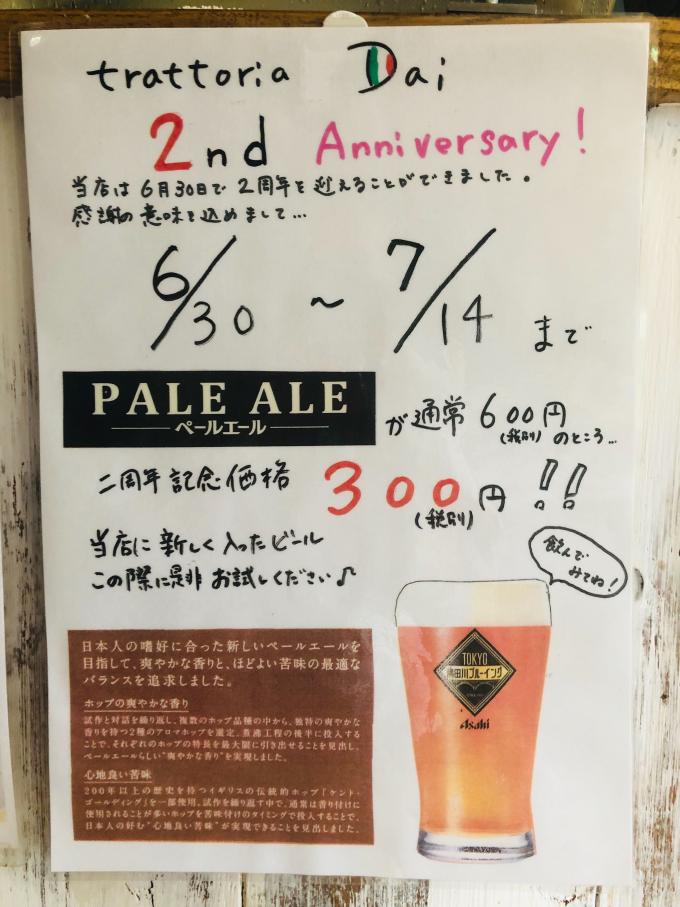 trattoria Dai
2nd Anniversary!
当店は6月30日で2周年を迎えることができました。
感謝の意味を込めまして...
6/30 ~ 7/14 まで
PALE ALE
ペールエール
が通常600円
(税別)のところ...
二周年記念価格 300円!!
(税別)
当店に新しく入ったビール
この際に是非お試しください♪
飲んで
みてね!
日本人の嗜好に合った新しいペールエールを
目指して、爽やかな香りと、ほどよい苦味の最適な
バランスを追求しました。
ホップの爽やかな香り
試作と対話を繰り返し、複数のホップ品種の中から、独特の爽やかな
香りを持つ2種のアロマホップを選定。煮沸工程の後半に投入する
ことで、それぞれのホップの特長を最大限に引き出せることを見出し、
ペールエールらしい"爽やかな香り"を実現しました。
心地良い苦味
200年以上の歴史を持つイギリスの伝統的ホップ「ケント・
ゴールディング」を一部使用。試作を繰り返す中で、通常は香り付けに
使用されることが多いホップを苦味付けのタイミングで投入することで、
日本人の好む"心地良い苦味"が実現できることを見出しました。
TOKYO
隅田川ブルーイング
Asahi